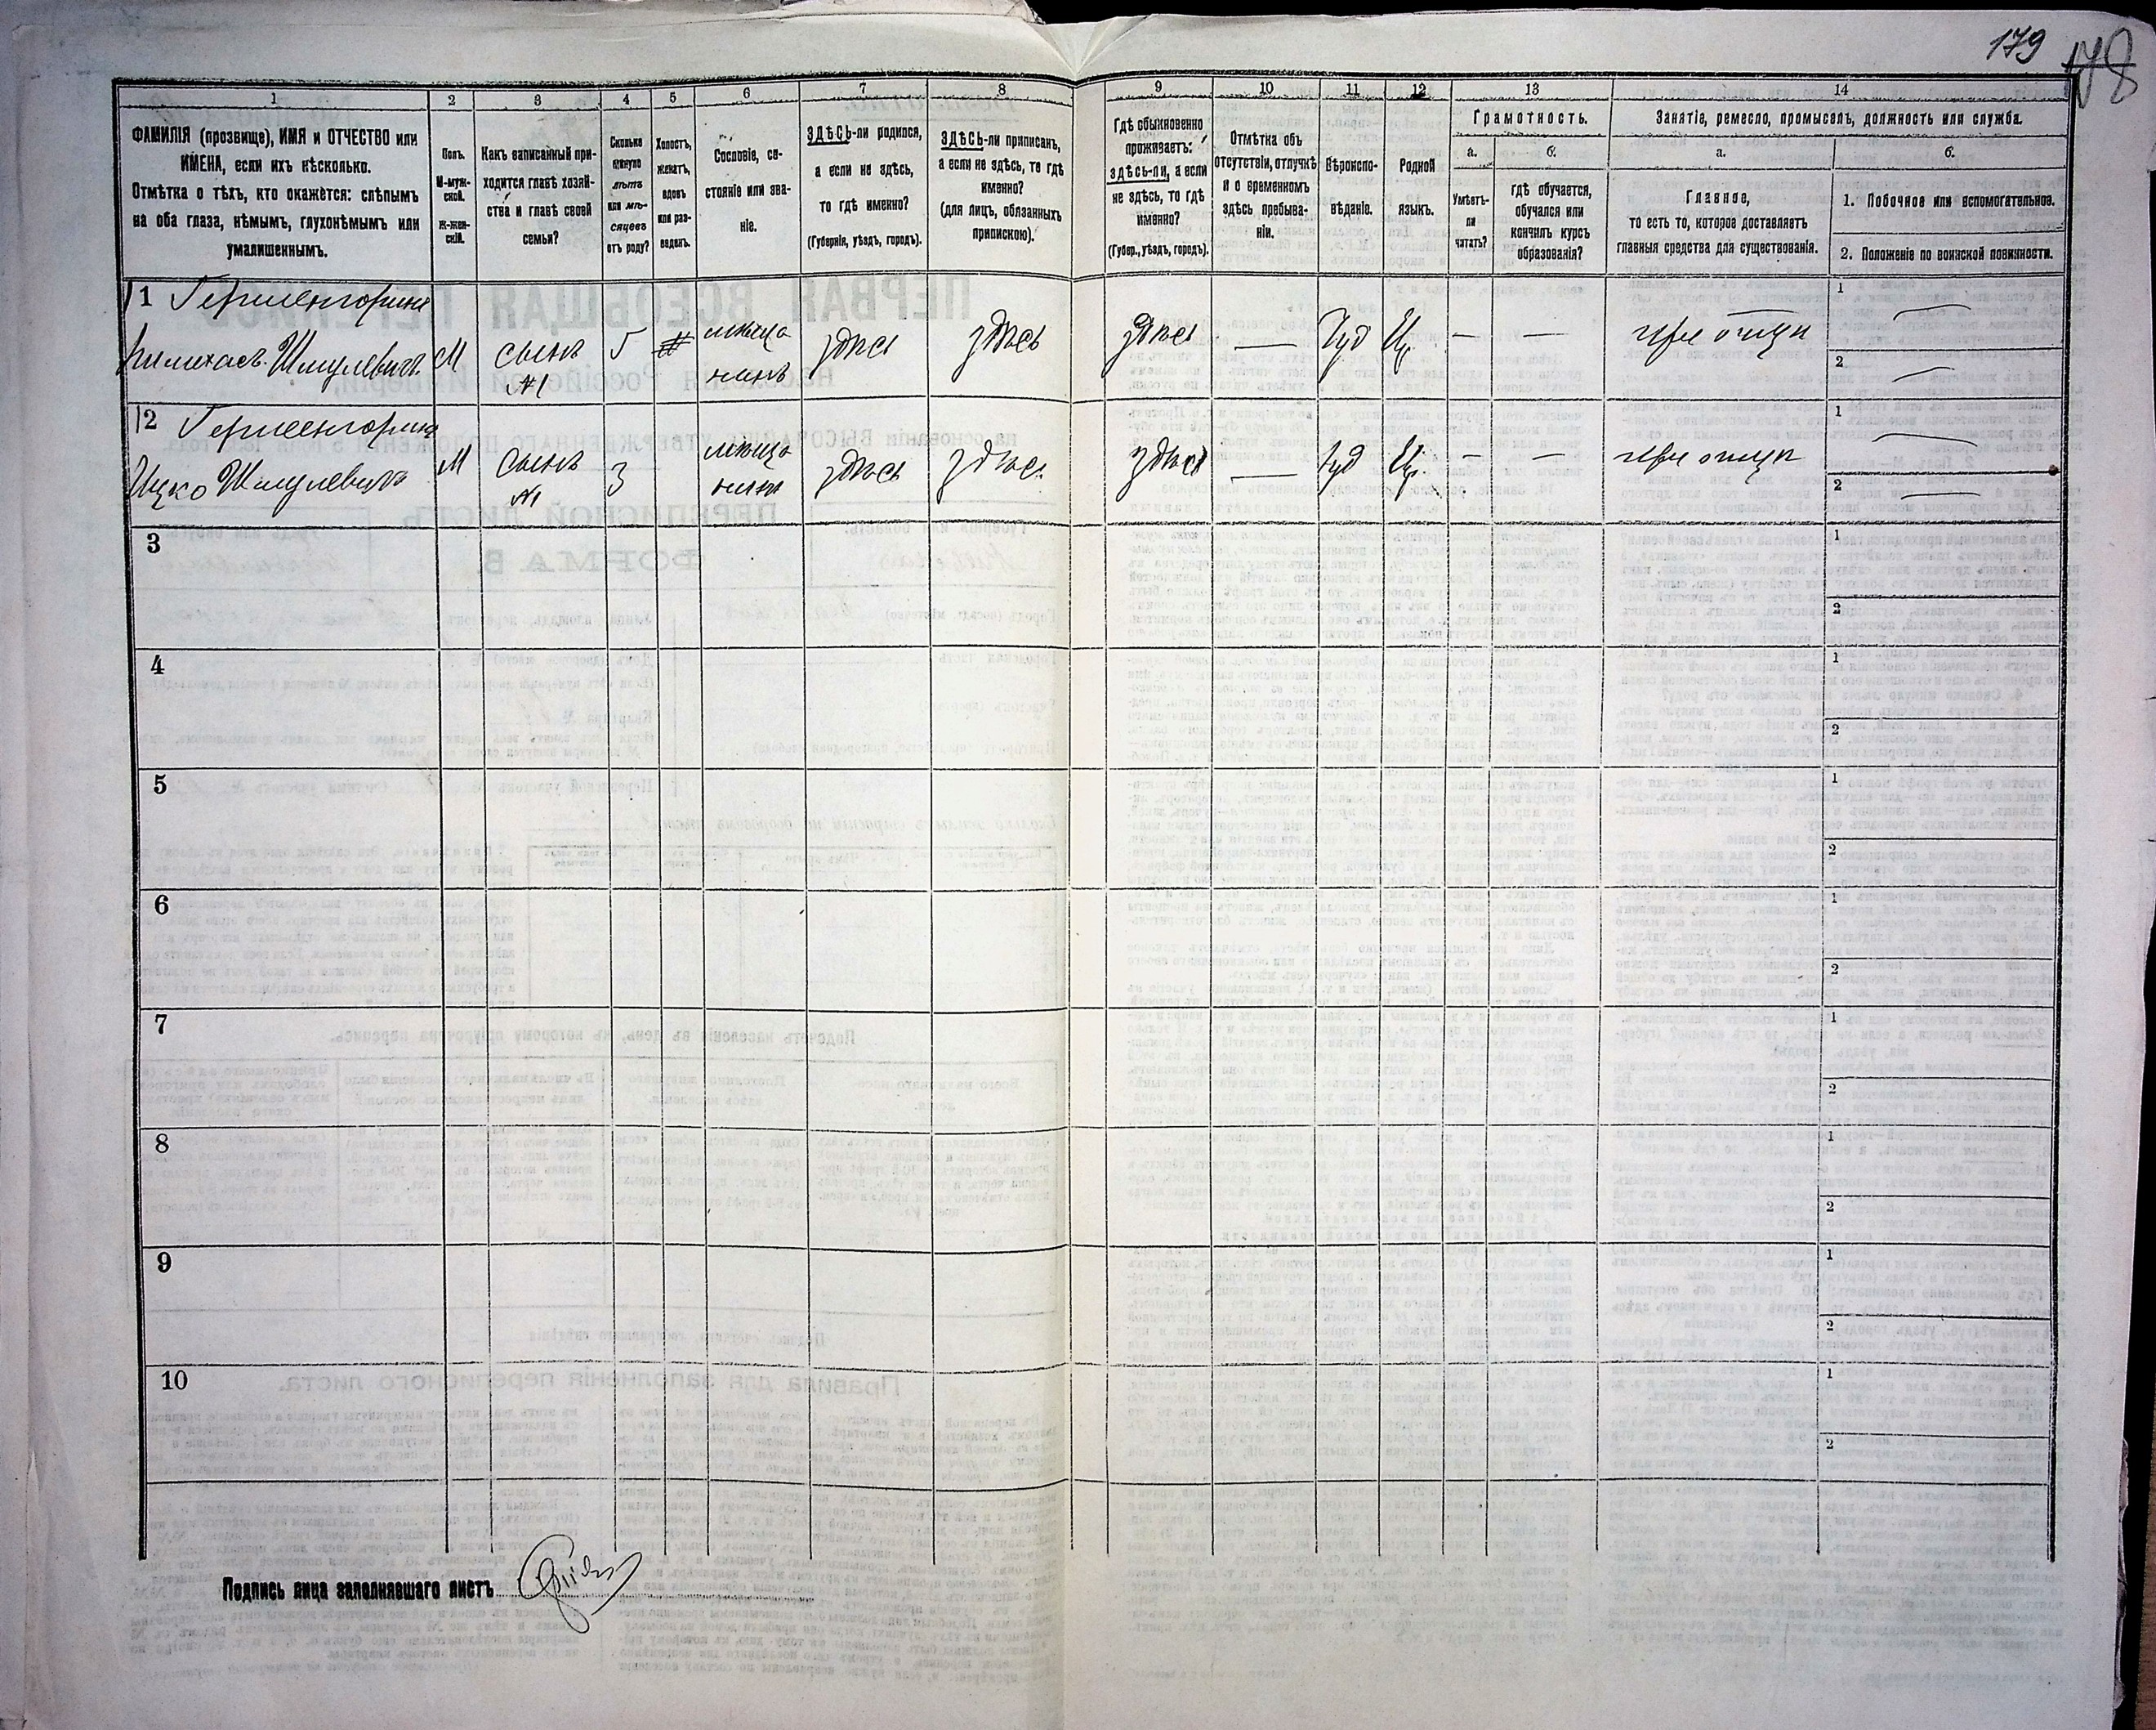 179
178
1
2
3
4
5
6
7
8
9
10
11
12
13
14
ФАМИЛІЯ (прозвище), ИМЯ и ОТЧЕСТВО или
ИМЕНА, если ихъ нѣсколько.
Отмѣтка о тѣхъ, кто окажется: слѣпымъ
на оба глаза, нѣмымъ, глухонѣмымъ или
умалишеннымъ.
Полъ.
М-муж-
ской.
ж-жен-
скій.
Какъ записанный при-
ходится главѣ хозяй-
ства и главѣ своей
семьи?
Сколько
минуло
лѣтъ
или мѣ-
сяцевъ
отъ роду?
Холостъ,
женатъ,
вдовъ
или раз-
веденъ.
Сословіе, со-
стояніе или зва-
ніе.
ЗДѢСЬ-ли родился,
а если не здѣсь,
то гдѣ именно?
(Губернія, уѣздъ, городъ).
ЗДѢСЬ-ли приписанъ,
а если не здѣсь, то гдѣ
именно?
(для лицъ, обязанныхъ
припиской).
Гдѣ обыкновенно
проживаетъ:
здѣсь-ли, а если
не здѣсь, то гдѣ
именно?
(Губер., уѣздъ, городъ).
Отмѣтка объ
отсутствіи, отлучкѣ
и о временномъ
здѣсь пребыва-
ніи.
Вѣроиспо-
вѣданіе.
Родной
языкъ.
Грамотность.
а.
б.
Умѣетъ-
ли
читать?
гдѣ обучается,
обучался или
кончилъ курсъ
образованія?
Занятіе, ремесло, промыселъ, должность или служба.
а.
б.
Главное,
то есть то, которое доставляетъ
главныя средства для существованія.
1. Побочное или вспомогательное.
2. Положеніе по воинской повинности.
11
Шмулевичъ М сынъ 5 мѣща здѣсь здѣсь здѣсь — Іуд Ев. — — при отцѣ 1 —
№1 нинъ 2 —
12
Ицко Шмулевичъ М сынъ 3 мѣща здѣсь здѣсь здѣсь — Іуд Ев. — — при отцѣ 1 —
№1 нинъ 2 —
3 1
2
4 1
2
5 1
2
6 1
2
7 1
2
8 1
2
9 1
2
10 1
2
Подпись лица заполнявшаго листъ